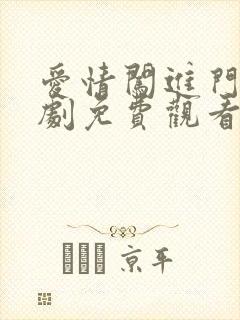 愛情闖進門
劇免費觀看
京平